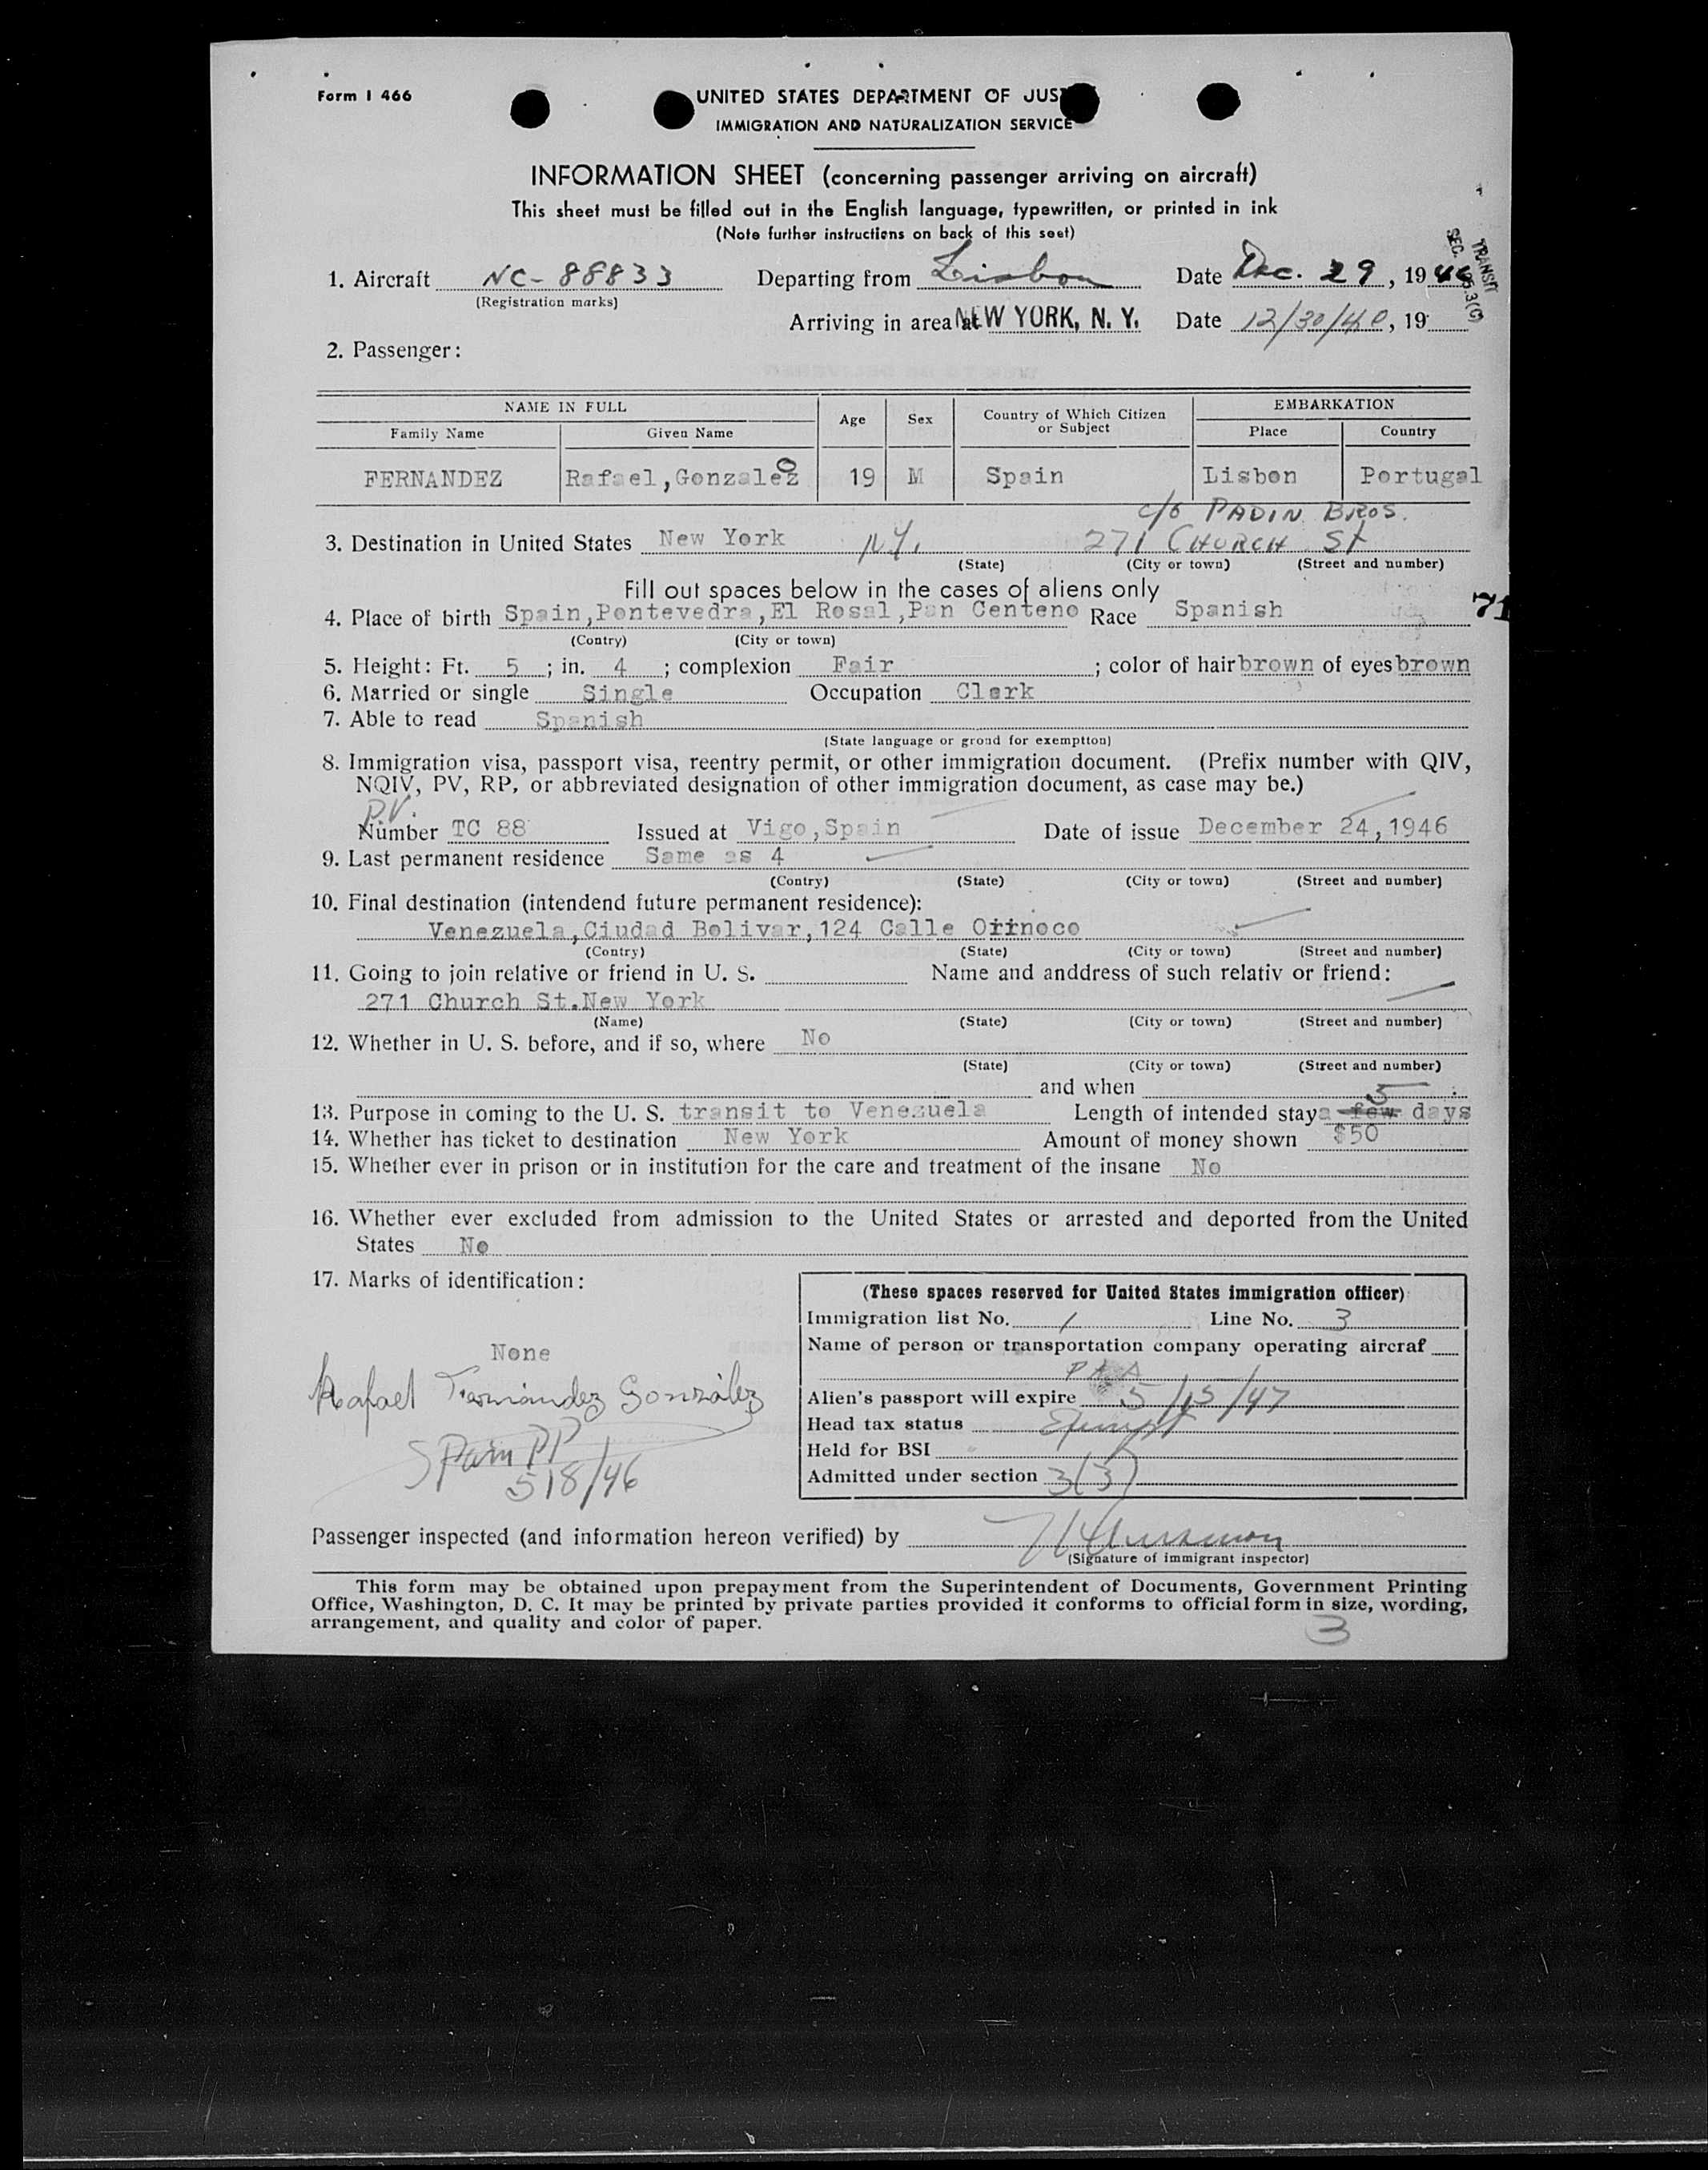 Form I 466
UNITED STATES DEPARTMENT OF JUST
IMMIGRATION AND NATURALIZATION SERVICE
INFORMATION SHEET (concerning passenger arriving on aircraft)
This sheet must be filled out in the English language, typewritten, or printed in ink
(Note further instructions on back of this seet)
TRANSIT
SEC. 3(3)
1. Aircraft NC-88833 Departing from Lisbon Date Dec. 29, 1946
(Registration marks)
Arriving in area at NEW YORK, N. Y. Date 12/30/46, 19
2. Passenger:
NAME IN FULL Age Sex Country of Which Citizen or Subject EMBARKATION
Family Name Given Name Place Country
FERNANDEZ Rafael,Gonzalez 19 M Spain Lisbon Portugal
c/o PADIN BROS.
3. Destination in United States New York N.Y. 271 CHURCH St
(State) (City or town) (Street and number)
Fill out spaces below in the cases of aliens only
4. Place of birth Spain,Pontevedra,El Rosal,Pan Centeno Race Spanish 71
(Contry) (City or town)
5. Height: Ft. 5; in. 4; complexion Fair; color of hair brown of eyes brown
6. Married or single Single Occupation Clerk
7. Able to read Spanish
(State language or grond for exemptton)
8. Immigration visa, passport visa, reentry permit, or other immigration document. (Prefix number with QIV,
NQIV, PV, RP, or abbreviated designation of other immigration document, as case may be.)
P.V.
Number TC 88 Issued at Vigo,Spain Date of issue December 24,1946
9. Last permanent residence Same as 4
(Contry) (State) (City or town) (Street and number)
10. Final destination (intendend future permanent residence):
Venezuela,Ciudad Bolivar,124 Calle Orinoco
(Contry) (State) (City or town) (Street and number)
11. Going to join relative or friend in U. S. Name and anddress of such relativ or friend:
271 Church St.New York
(Name) (State) (City or town) (Street and number)
12. Whether in U. S. before, and if so, where No
(State) (City or town) (Street and number)
and when
5
13. Purpose in coming to the U. S. transit to Venezuela Length of intended stay a few days
14. Whether has ticket to destination New York Amount of money shown $50
15. Whether ever in prison or in institution for the care and treatment of the insane No
16. Whether ever excluded from admission to the United States or arrested and deported from the United
States No
17. Marks of identification:
None
Rafael Fernández González
Spain PP
518/46
(These spaces reserved for United States immigration officer)
Immigration list No. 1 Line No. 3
Name of person or transportation company operating aircraf
PAA
Alien's passport will expire 5/15/47
Head tax status Exempt
Held for BSI
Admitted under section 3(3)
Passenger inspected (and information hereon verified) by
(Signature of immigrant inspector)
This form may be obtained upon prepayment from the Superintendent of Documents, Government Printing
Office, Washington, D. C. It may be printed by private parties provided it conforms to official form in size, wording,
arrangement, and quality and color of paper.
3